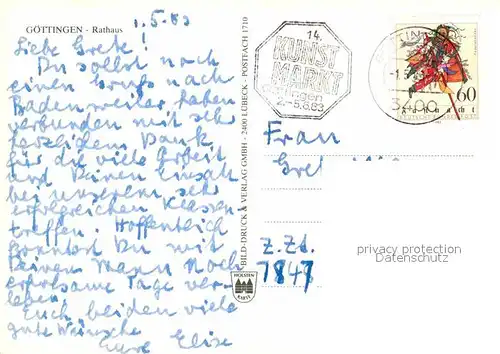 1.5.83
GÖTTINGEN - Rathaus
Liebe Grete!
Du sollst noch
einen Gruß nach
Badenweiler haben
verbunden mit sehr
herzlichem Dank
für die viele Arbeit
und Deinen Einsatz
bei unserem sehr
erfolgreichen Klassen-
treffen. Hoffentlich
konntest Du mit
Deinem Mann noch
erholsame Tage ver-
leben. Euch beiden viele
gute Wünsche
Eure Elise
BILD-DRUCK & VERLAG GMBH - 2400 LÜBECK - POSTFACH 1710
HOLSTEN
KARTE
14.
KUNST
MARKT
2.-5.6.83
3400
60
Frau
Gret
z. Zt.
7847
privacy protection
Datenschutz